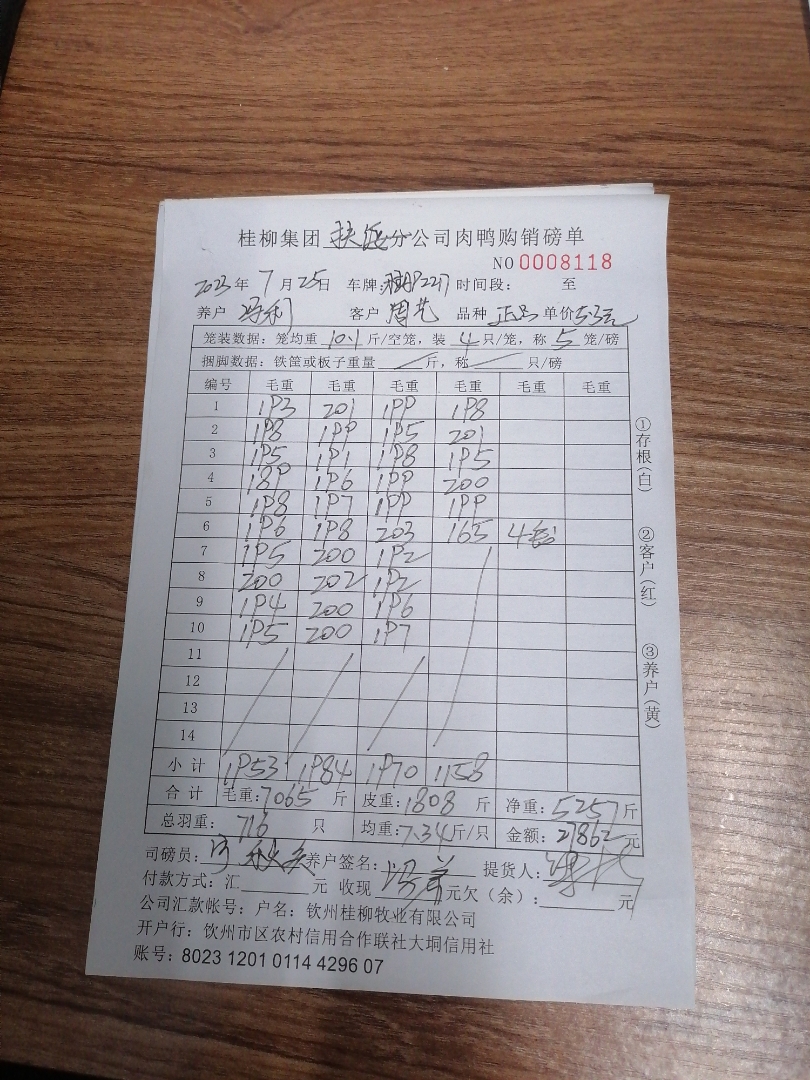 桂柳集团 分公司肉鸭购销磅单
NO 0008118
2023 年 7 月 25 日 车牌: 时间段: 至
养户 冯利 客户 周艺 品种 正品 单价 5.3元
笼装数据: 笼均重 10.1 斤/空笼, 装 4 只/笼, 称 5 笼/磅
捆脚数据: 铁筐或板子重量 斤, 称 只/磅
编号 毛重 毛重 毛重 毛重 毛重 毛重
1 193 201 199 198
2 198 199 195 201
3 195 191 198 195
4 189 196 199 200
5 198 197 199 199
6 196 198 203 165 4
7 195 200 192
8 200 202 192
9 194 200 196
10 195 200 197
11
12
13
14
小计 1953 1984 1970 1158
合计 毛重: 7065 斤 皮重: 1808 斤 净重: 5257 斤
总羽重: 716 只 均重: 7.34 斤/只 金额: 27862 元
司磅员: 养户签名: 提货人:
付款方式: 汇 元 收现 元欠(余): 元
公司汇款帐号: 户名: 钦州桂柳牧业有限公司
开户行: 钦州市区农村信用合作联社大垌信用社
账号: 8023 1201 0114 4296 07
①存根(白)
②客户(红)
③养户(黄)